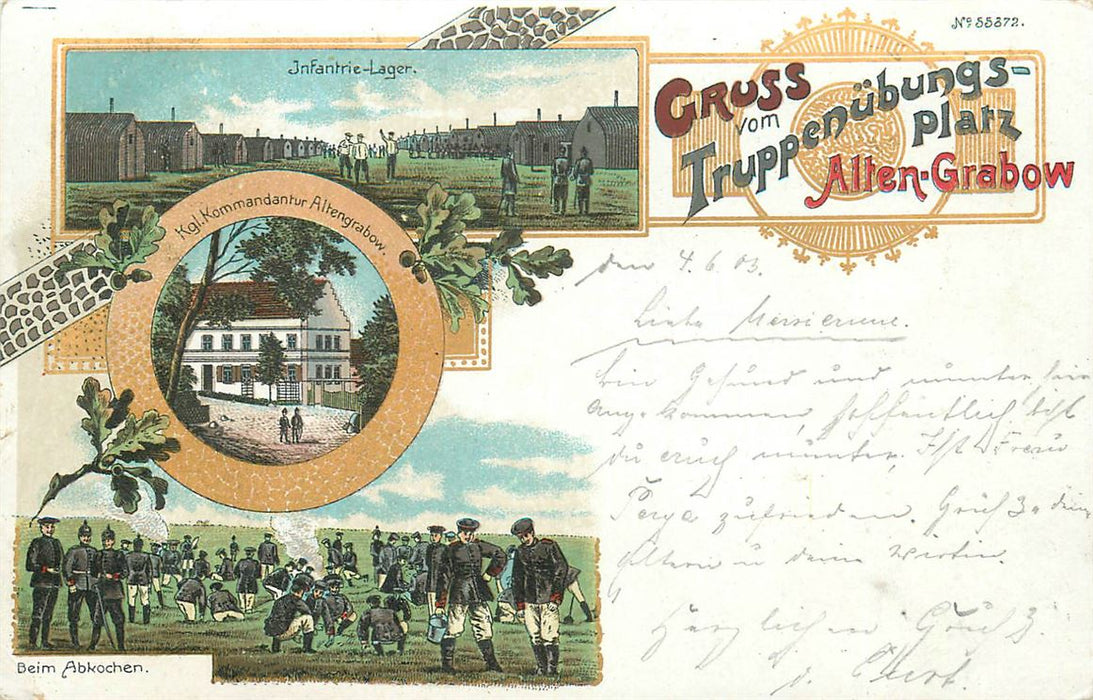 Nº 55372.
Infantrie-Lager.
GRUSS
vom
Truppenübungs-
platz
Alten-Grabow
Kgl. Kommandantur Altengrabow.
den 4.6.03.
Liebe
Bin Gesund und munter hier
angekommen, hoffentlich bist
du auch munter. Ist
zufrieden. Gruß
Eltern u deine Wirtin.
Herzlichen Gruß
Beim Abkochen.